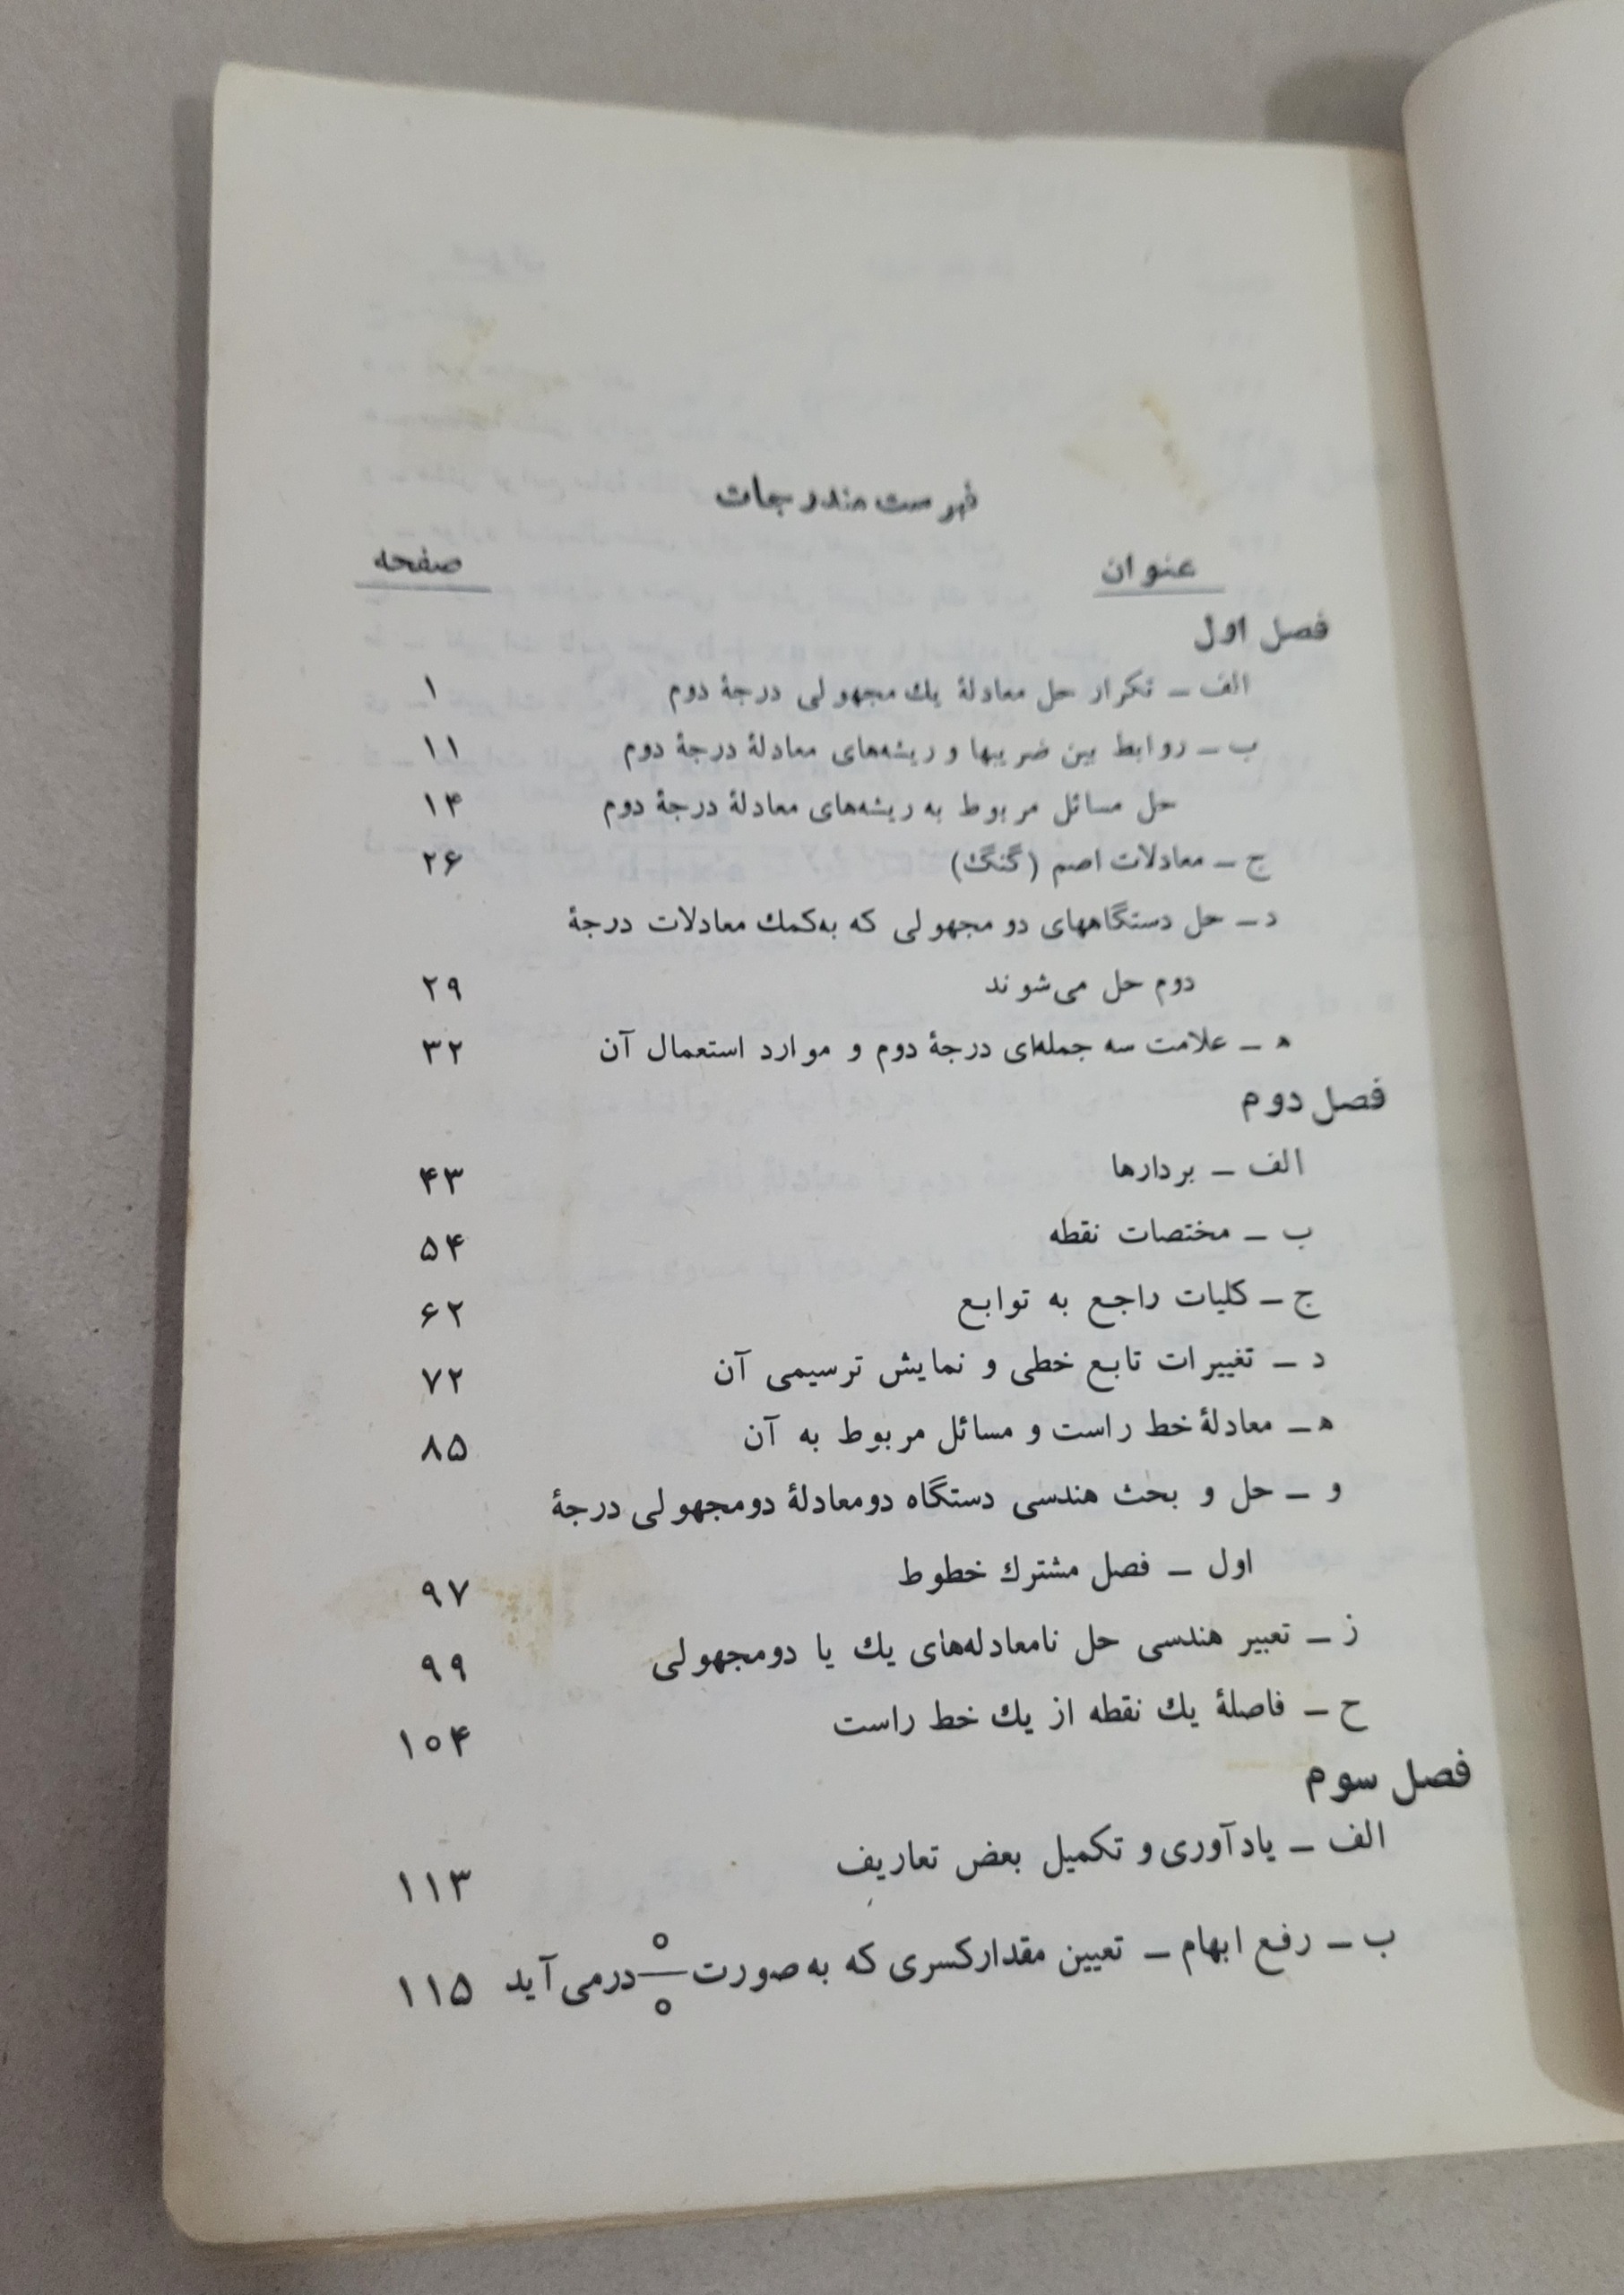 فهرست مندرجات
عنوان صفحه
فصل اول
الف ـ تکرار حل معادلهٔ یك مجهولی درجهٔ دوم ۱
ب ـ روابط بین ضریبها و ریشه‌های معادلهٔ درجهٔ دوم ۱۱
حل مسائل مربوط به ریشه‌های معادلهٔ درجهٔ دوم ۱۴
ج ـ معادلات اصم (گنگ) ۲۶
د ـ حل دستگاههای دو مجهولی که به‌کمك معادلات درجهٔ
دوم حل می‌شوند ۲۹
ه ـ علامت سه جمله‌ای درجهٔ دوم و موارد استعمال آن ۳۲
فصل دوم
الف ـ بردارها ۴۳
ب ـ مختصات نقطه ۵۴
ج ـ کلیات راجع به توابع ۶۲
د ـ تغییرات تابع خطی و نمایش ترسیمی آن ۷۲
ه ـ معادلهٔ خط راست و مسائل مربوط به آن ۸۵
و ـ حل و بحث هندسی دستگاه دومعادلهٔ دومجهولی درجهٔ
اول ـ فصل مشترك خطوط ۹۷
ز ـ تعبیر هندسی حل نامعادله‌های یك یا دومجهولی ۹۹
ح ـ فاصلهٔ یك نقطه از یك خط راست ۱۰۴
فصل سوم
الف ـ یادآوری و تکمیل بعض تعاریف ۱۱۳
ب ـ رفع ابهام ـ تعیین مقدارکسری که به‌صورت ۰/۰ درمی‌آید ۱۱۵